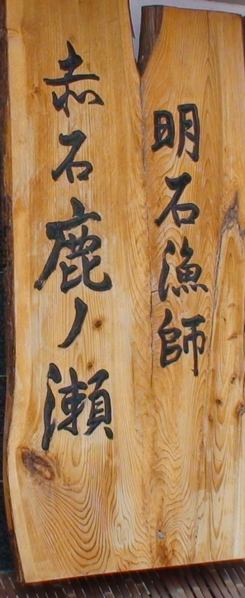 明石漁師
赤石鹿ノ瀬